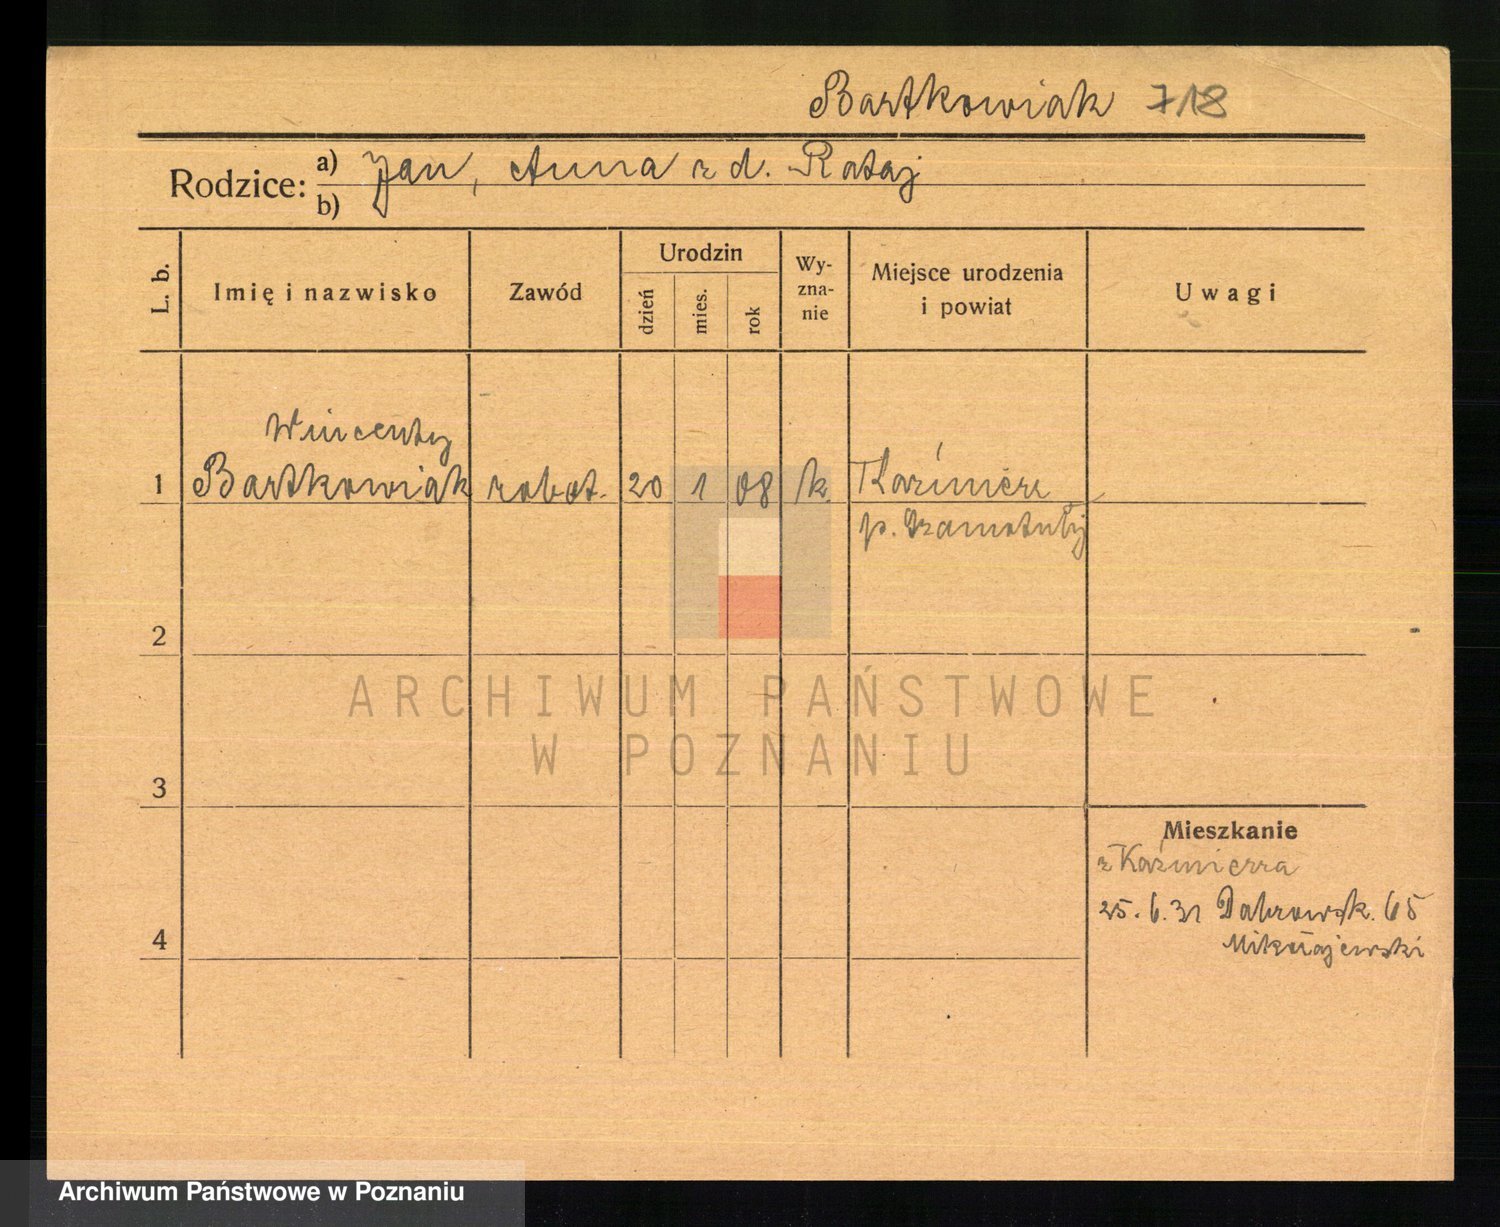 Bartkowiak 718
Rodzice: a) Jan, Anna z d. Rataj
b)
L. b. Imię i nazwisko Zawód Urodzin dzień mies. rok Wyznanie Miejsce urodzenia i powiat Uwagi
Wincenty
1 Bartkowiak robot. 20 1 08 k. Kaźmierz
p. Szamotuły
2
ARCHIWUM PAŃSTWOWE
W POZNANIU
3
Mieszkanie
z Kaźmierza
25. 6. 31 Dabrowsk. 65
4
Mikołajewski
Archiwum Państwowe w Poznaniu